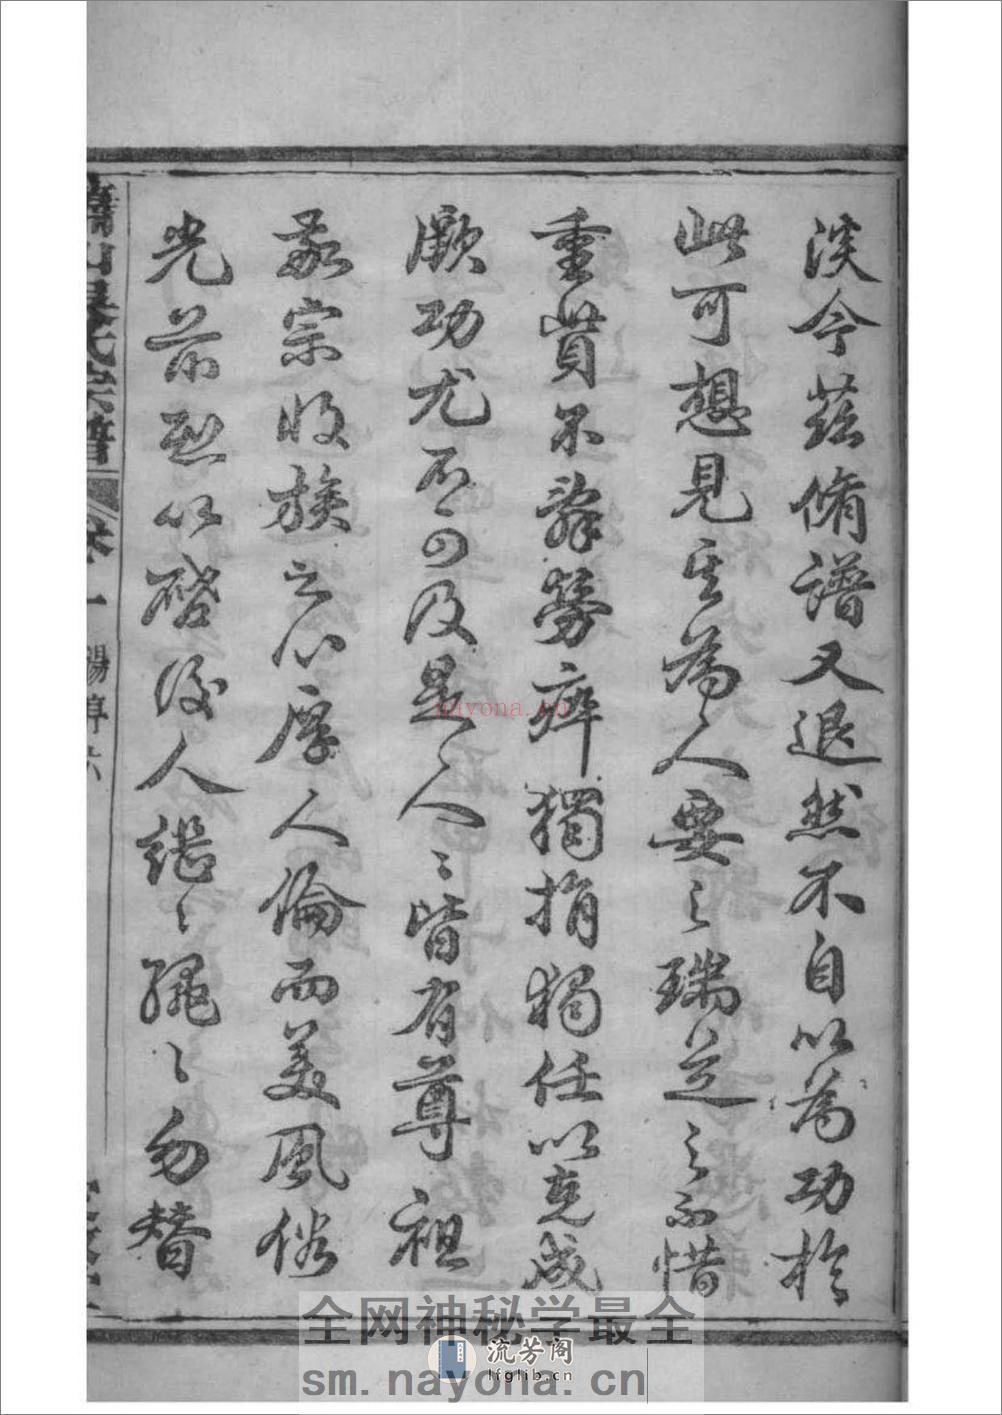 淡今茲脩譜又退然不自以為功於
此可想見其為人要之瑞芝之不惜
重貲不辭勞瘁獨捐獨任以克成
厥功尤不可及是人人ミ皆有尊祖
敬宗收族之心厚人倫而美風俗
光前烈以啓後人繼〻繩〻勿替
蕭山吳氏宗譜 卷一 湯序 六
nayona.cn
全网神秘学最全
流芳阁
lfglib.cn
sm.nayona.cn